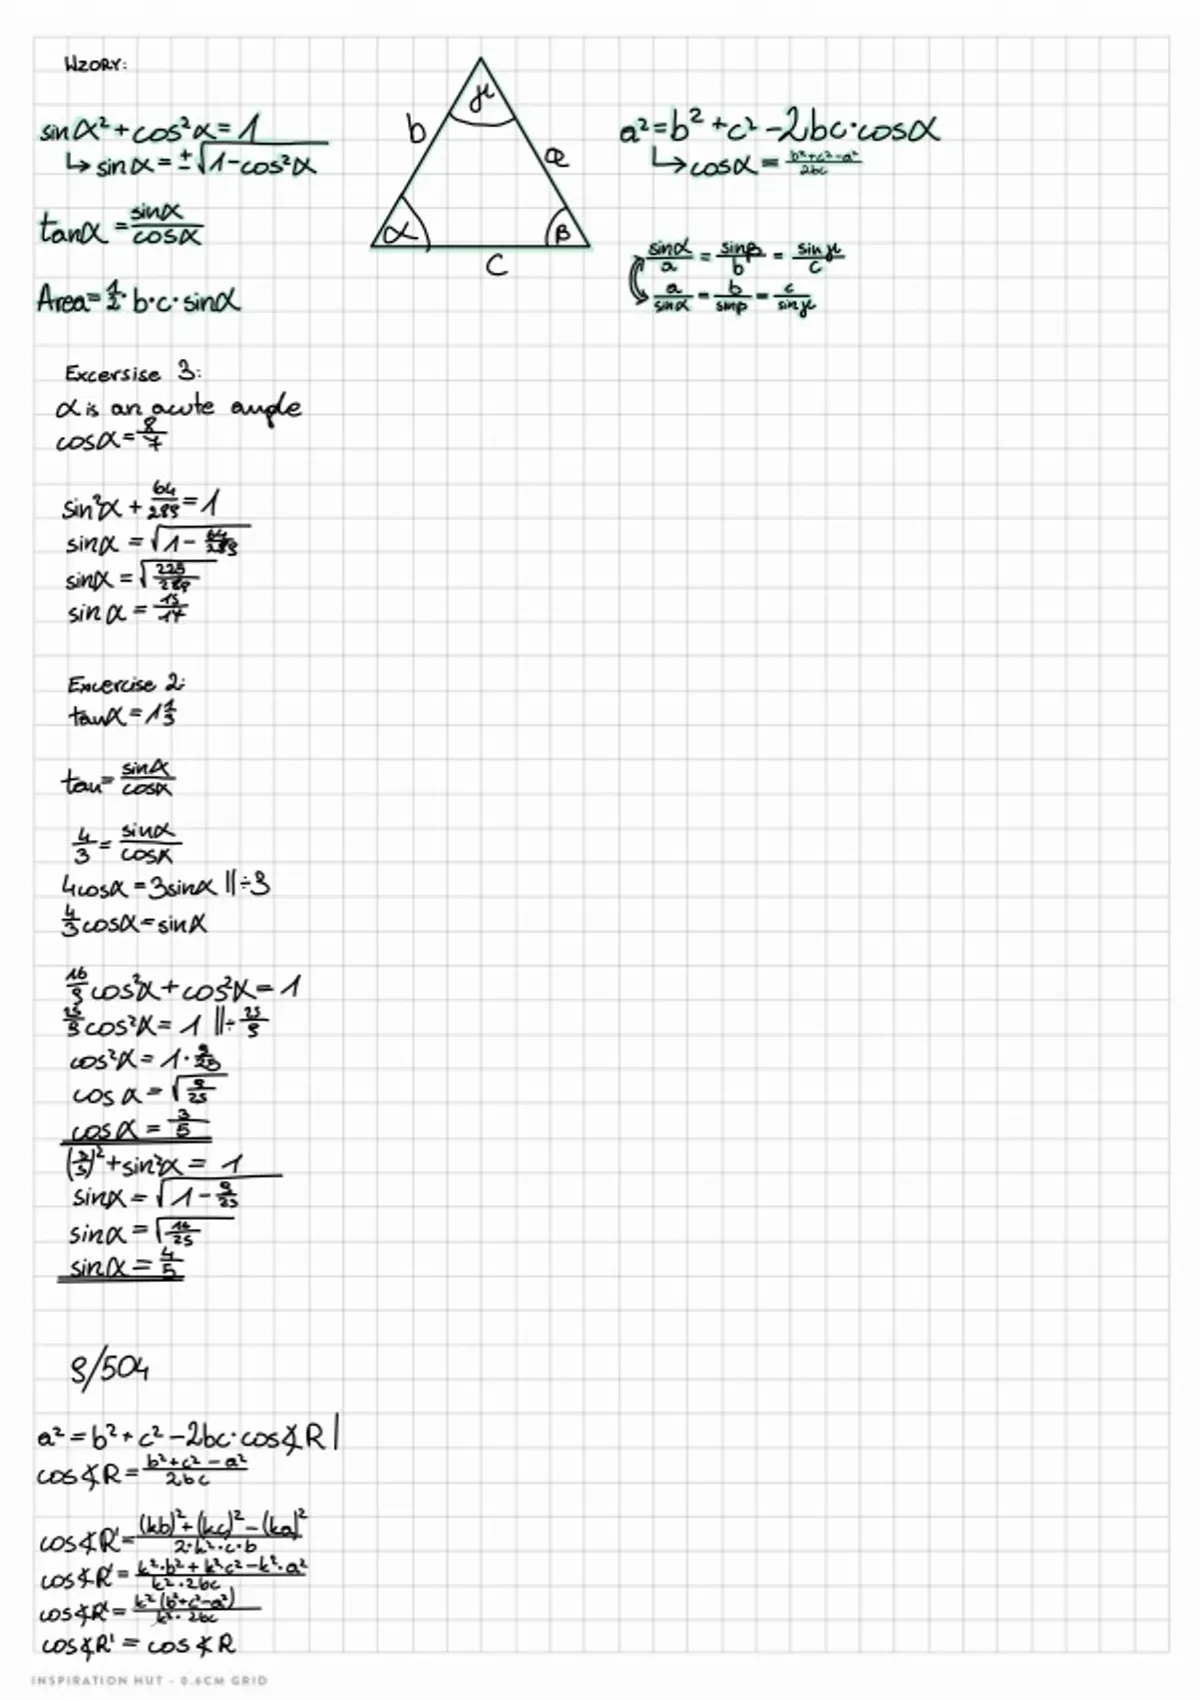 WZORY:
sinα²+cos²α=1
↳sinα=±√1-cos²α
tanα=sinα/cosα
Area=1/2·b·c·sinα
γ
b
a
α
β
c
a²=b²+c²-2bc·cosα
↳cosα=b²+c²-a²/2bc
sinα/a=sinβ/b=sinγ/c
a/sinα=b/sinβ=c/sinγ
Excersise 3:
α is an acute angle
cosα=8/7
sin²α+64/289=1
sinα=√1-64/289
sinα=√225/289
sinα=15/17
Excercise 2:
tanα=1 1/3
tan=sinα/cosα
4/3=sinα/cosα
4cosα=3sinα ||÷3
4/3cosα=sinα
16/9cos²α+cos²α=1
25/9cos²α=1 ||÷25/9
cos²α=1·9/25
cosα=√9/25
cosα=3/5
(3/5)²+sin²α=1
sinα=√1-9/25
sinα=√16/25
sinα=4/5
9/504
a²=b²+c²-2bc·cos∢R|
cos∢R=b²+c²-a²/2bc
cos∢R'=(kb)²+(kc)²-(ka)²/2·k²·c·b
cos∢R'=k²·b²+k²c²-k²·a²/k²·2bc
cos∢R'=k²(b²+c²-a²)/k²·2bc
cos∢R'=cos∢R
INSPIRATION HUT - 0.6CM GRID